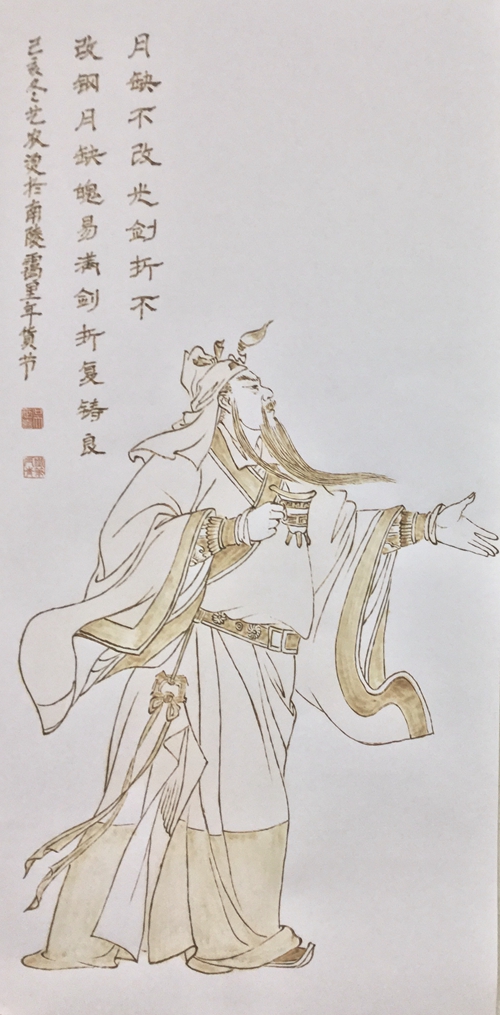 月缺不改光剑折不
改钢月缺魄易满剑折复铸良
己亥冬艺农烫於南陵霭里年货节